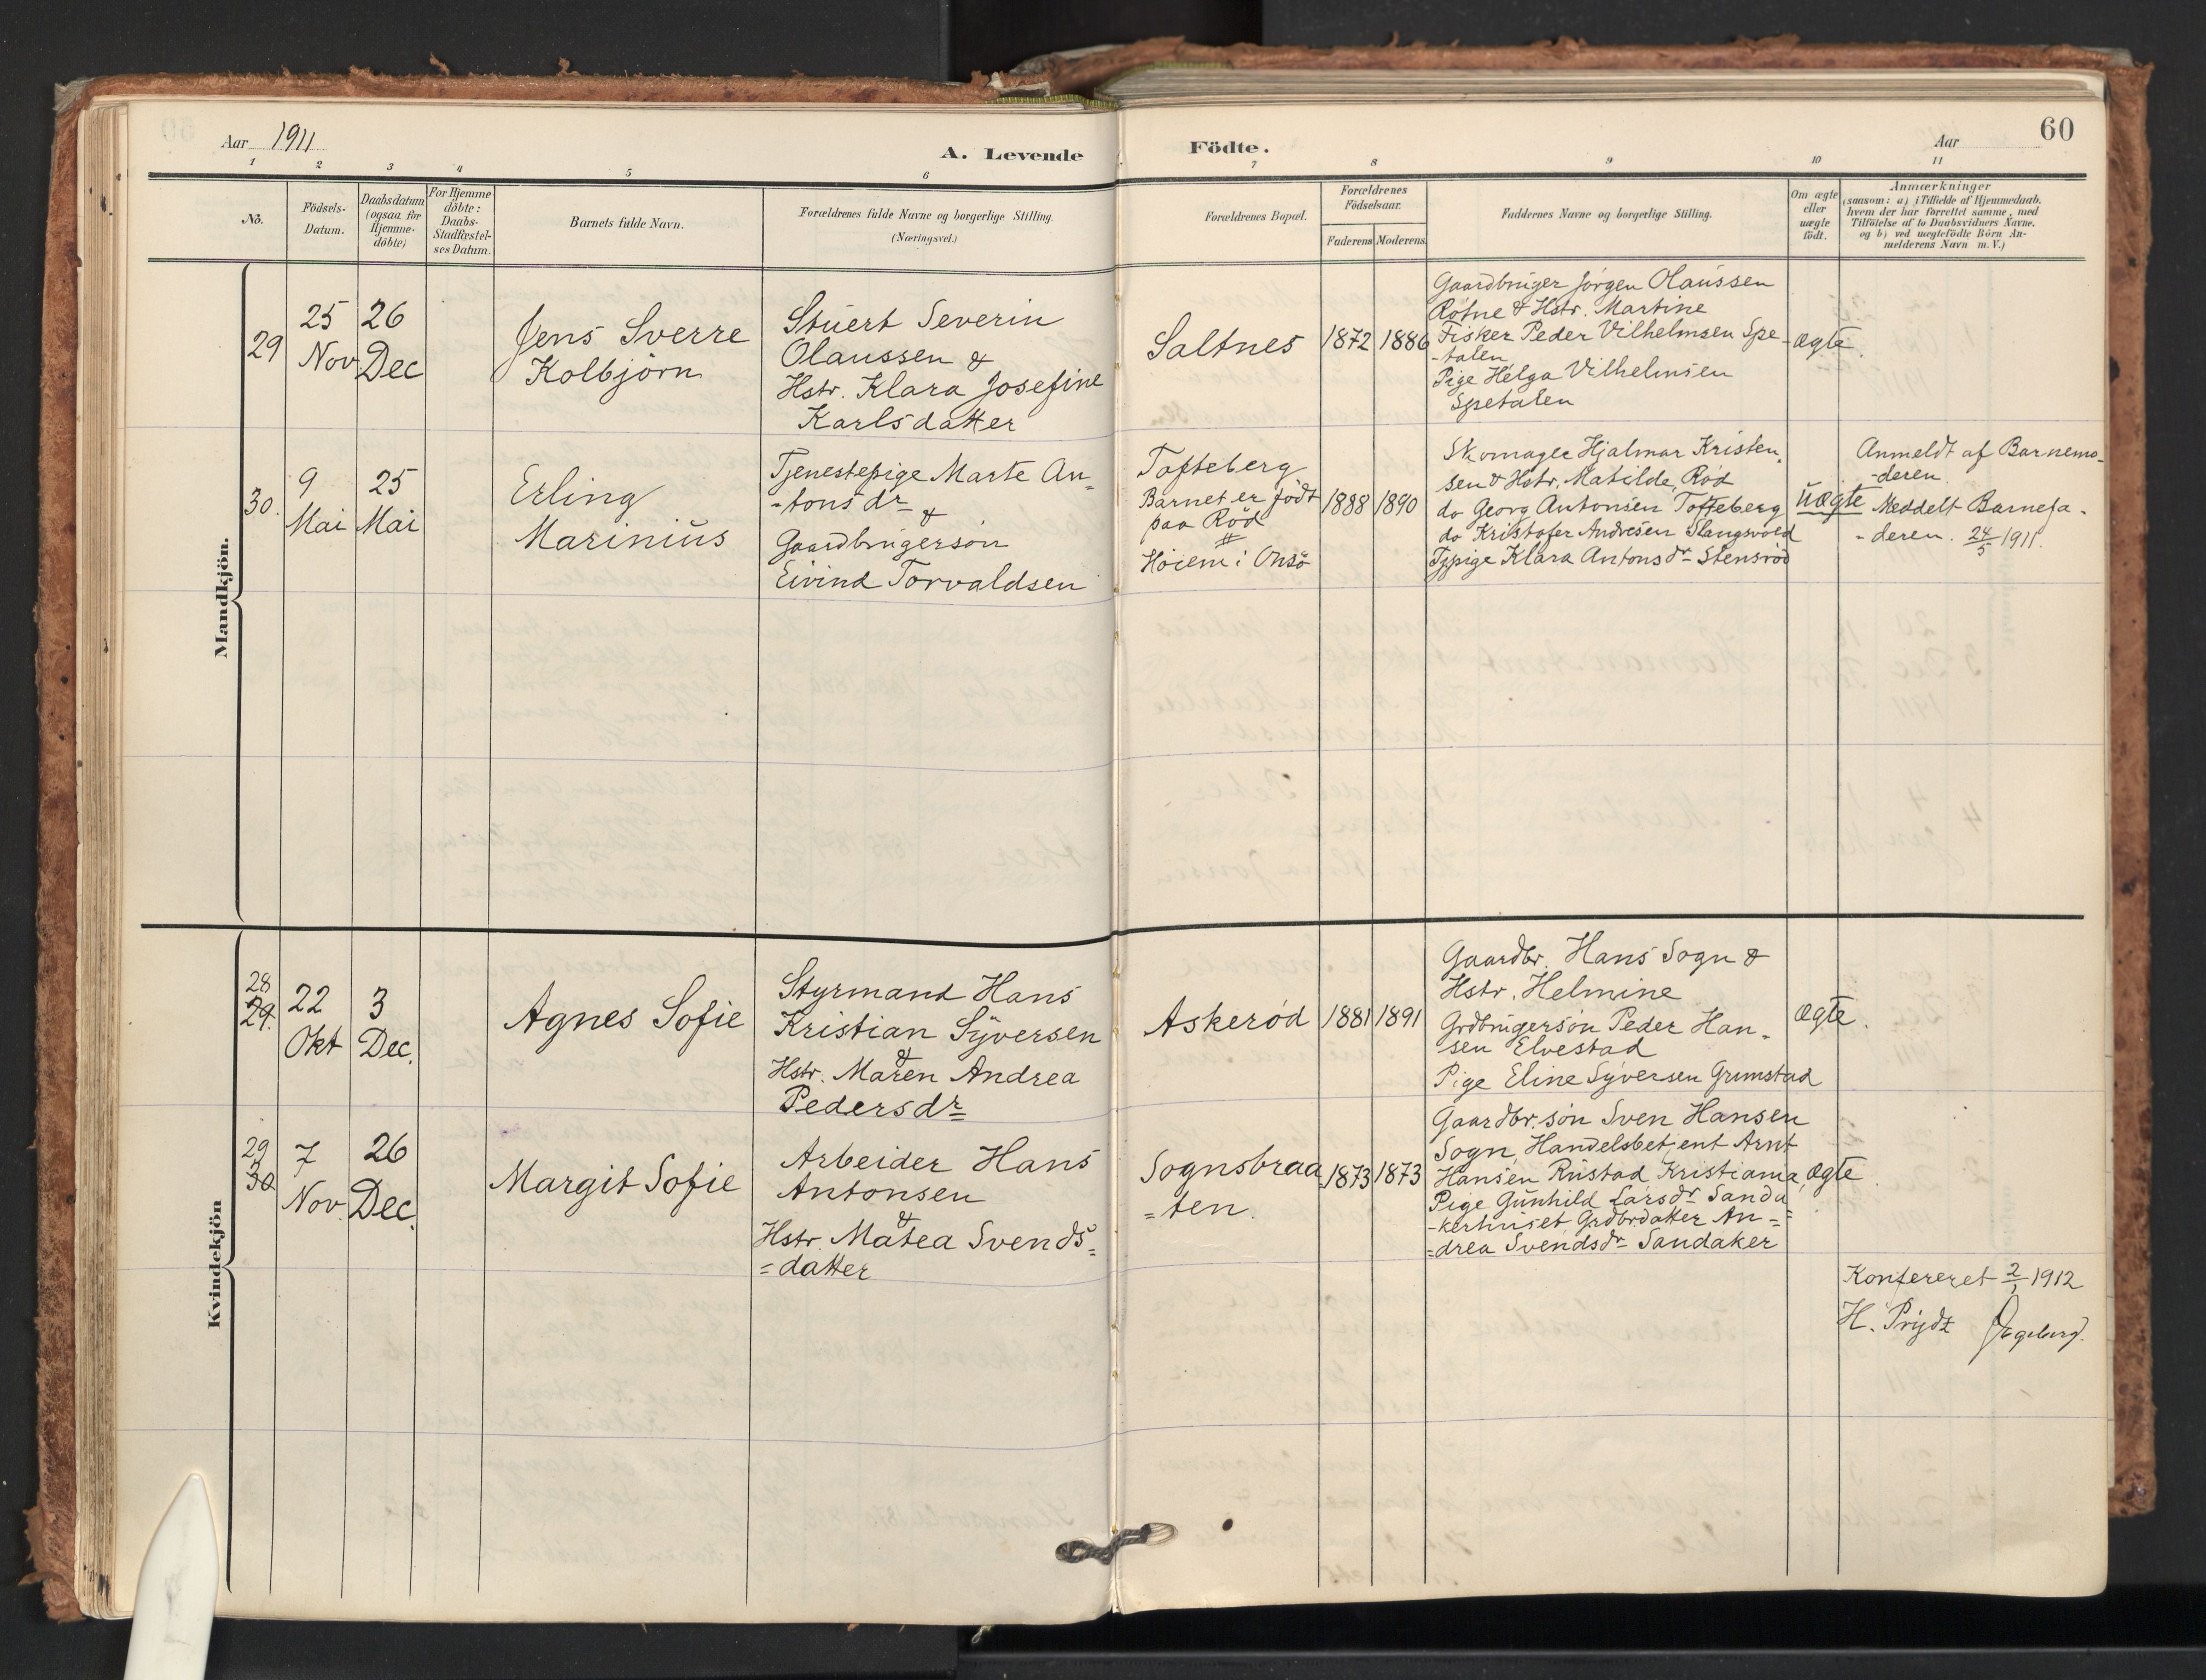 Aar 1911
A. Levende Födte.
Aar
60
1 2 3 4 5 6 7 8 9 10 11
No.
Födsels-
Datum.
Daabsdatum
(ogsaa for
Hjemme-
döbte)
For Hjemme
döbte:
Daabs-
Stadfæstel-
ses Datum.
Barnets fulde Navn.
Forældrenes fulde Navne og borgerlige Stilling.
(Næringsvei.)
Forældrenes Bopæl.
Forældrenes
Födselsaar.
Faderens Moderens
Faddernes Navne og borgerlige Stilling.
Om ægte
eller
uægte
födt.
Anmærkninger
(saasom: a) i Tilfælde af Hjemmedaab,
hvem der har forrettet samme, med
Tilföielse af to Daabsvidners Navne,
og b) ved uægtefödte Börn An-
melderens Navn m. V.)
Mandkjön.
29
25
Nov
26
Dec
Jens Sverre
Kolbjörn
Stuert Severin
Olaussen &
Hstr. Klara Josefine
Karlsdatter
Saltnes
1872
1886
Gaardbruger Jörgen Olaussen
Röfne & Hstr. Martine
Fisker Peder Vilhelmsen Spe-
-talen
Pige Helga Vilhelmsen
Spetalen
Ægte.
30.
9
Mai
25
Mai
Erling
Marinius
Tjenestepige Marte An-
-tonsdr
&
Gaardbrugersön
Eivind Torvaldsen
Tofteberg
Barnet er födt
paa Röd
Höiem i Onsö
1888
1890
Skomager Hjalmar Kristen-
sen & Hstr. Matilde, Röd
do Georg Antonsen Tofteberg
do Kristofer Andresen Slangsvold
Tjpige Klara Antonsdr Stensröd
Uægte
Anmeldt af Barnemo-
-deren
Meddelt Barnefa-
-deren. 24/5 1911.
Kvindekjön
28
29.
22
Okt
3
Dec.
Agnes Sofie
Styrmand Hans
Kristian Syversen
&
Hstr. Maren Andrea
Pedersdr
Askeröd
1881
1891
Gaardbr. Hans Sogn &
Hstr. Helmine
Grdbrugersön Peder Han-
sen Elvestad
Pige Eline Syversen Grimstad
Ægte.
29
30
7
Nov.
26
Dec.
Margit Sofie
Arbeider Hans
Antonsen
&
Hstr. Matea Svends=
=datter
Sognsbraa
=ten.
1873
1873
Gaardbr.sön Sven Hansen
Sogn, Handelsbetjent Arnt
Hansen Rustad Kristiania,
Pige Gunhild Larsdr Sanda
-kerhuset Grdbrdatter An=
=drea Svendsdr Sandaker
Ægte.
Konfereret 2/1 1912
H. Prydz